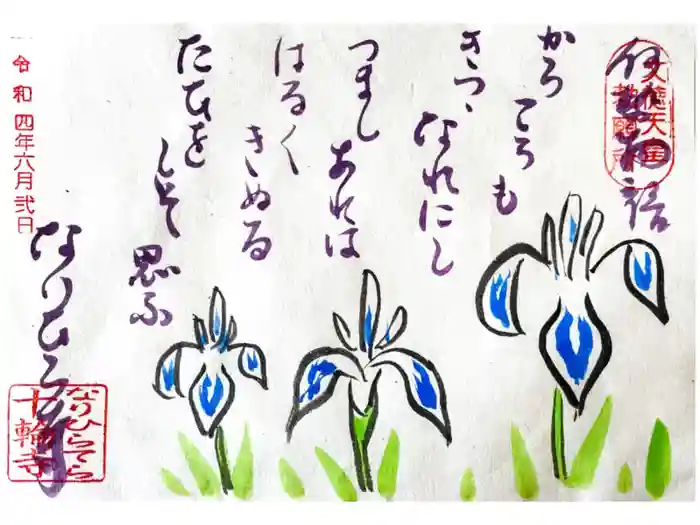 伊勢物語
文徳天皇
勅願所
からころも
きつゝなれにし
つましあれは
はるくきぬる
たひをしそ思ふ
令和四年六月弐日
なりひら寺
なりひらてら
十輪寺